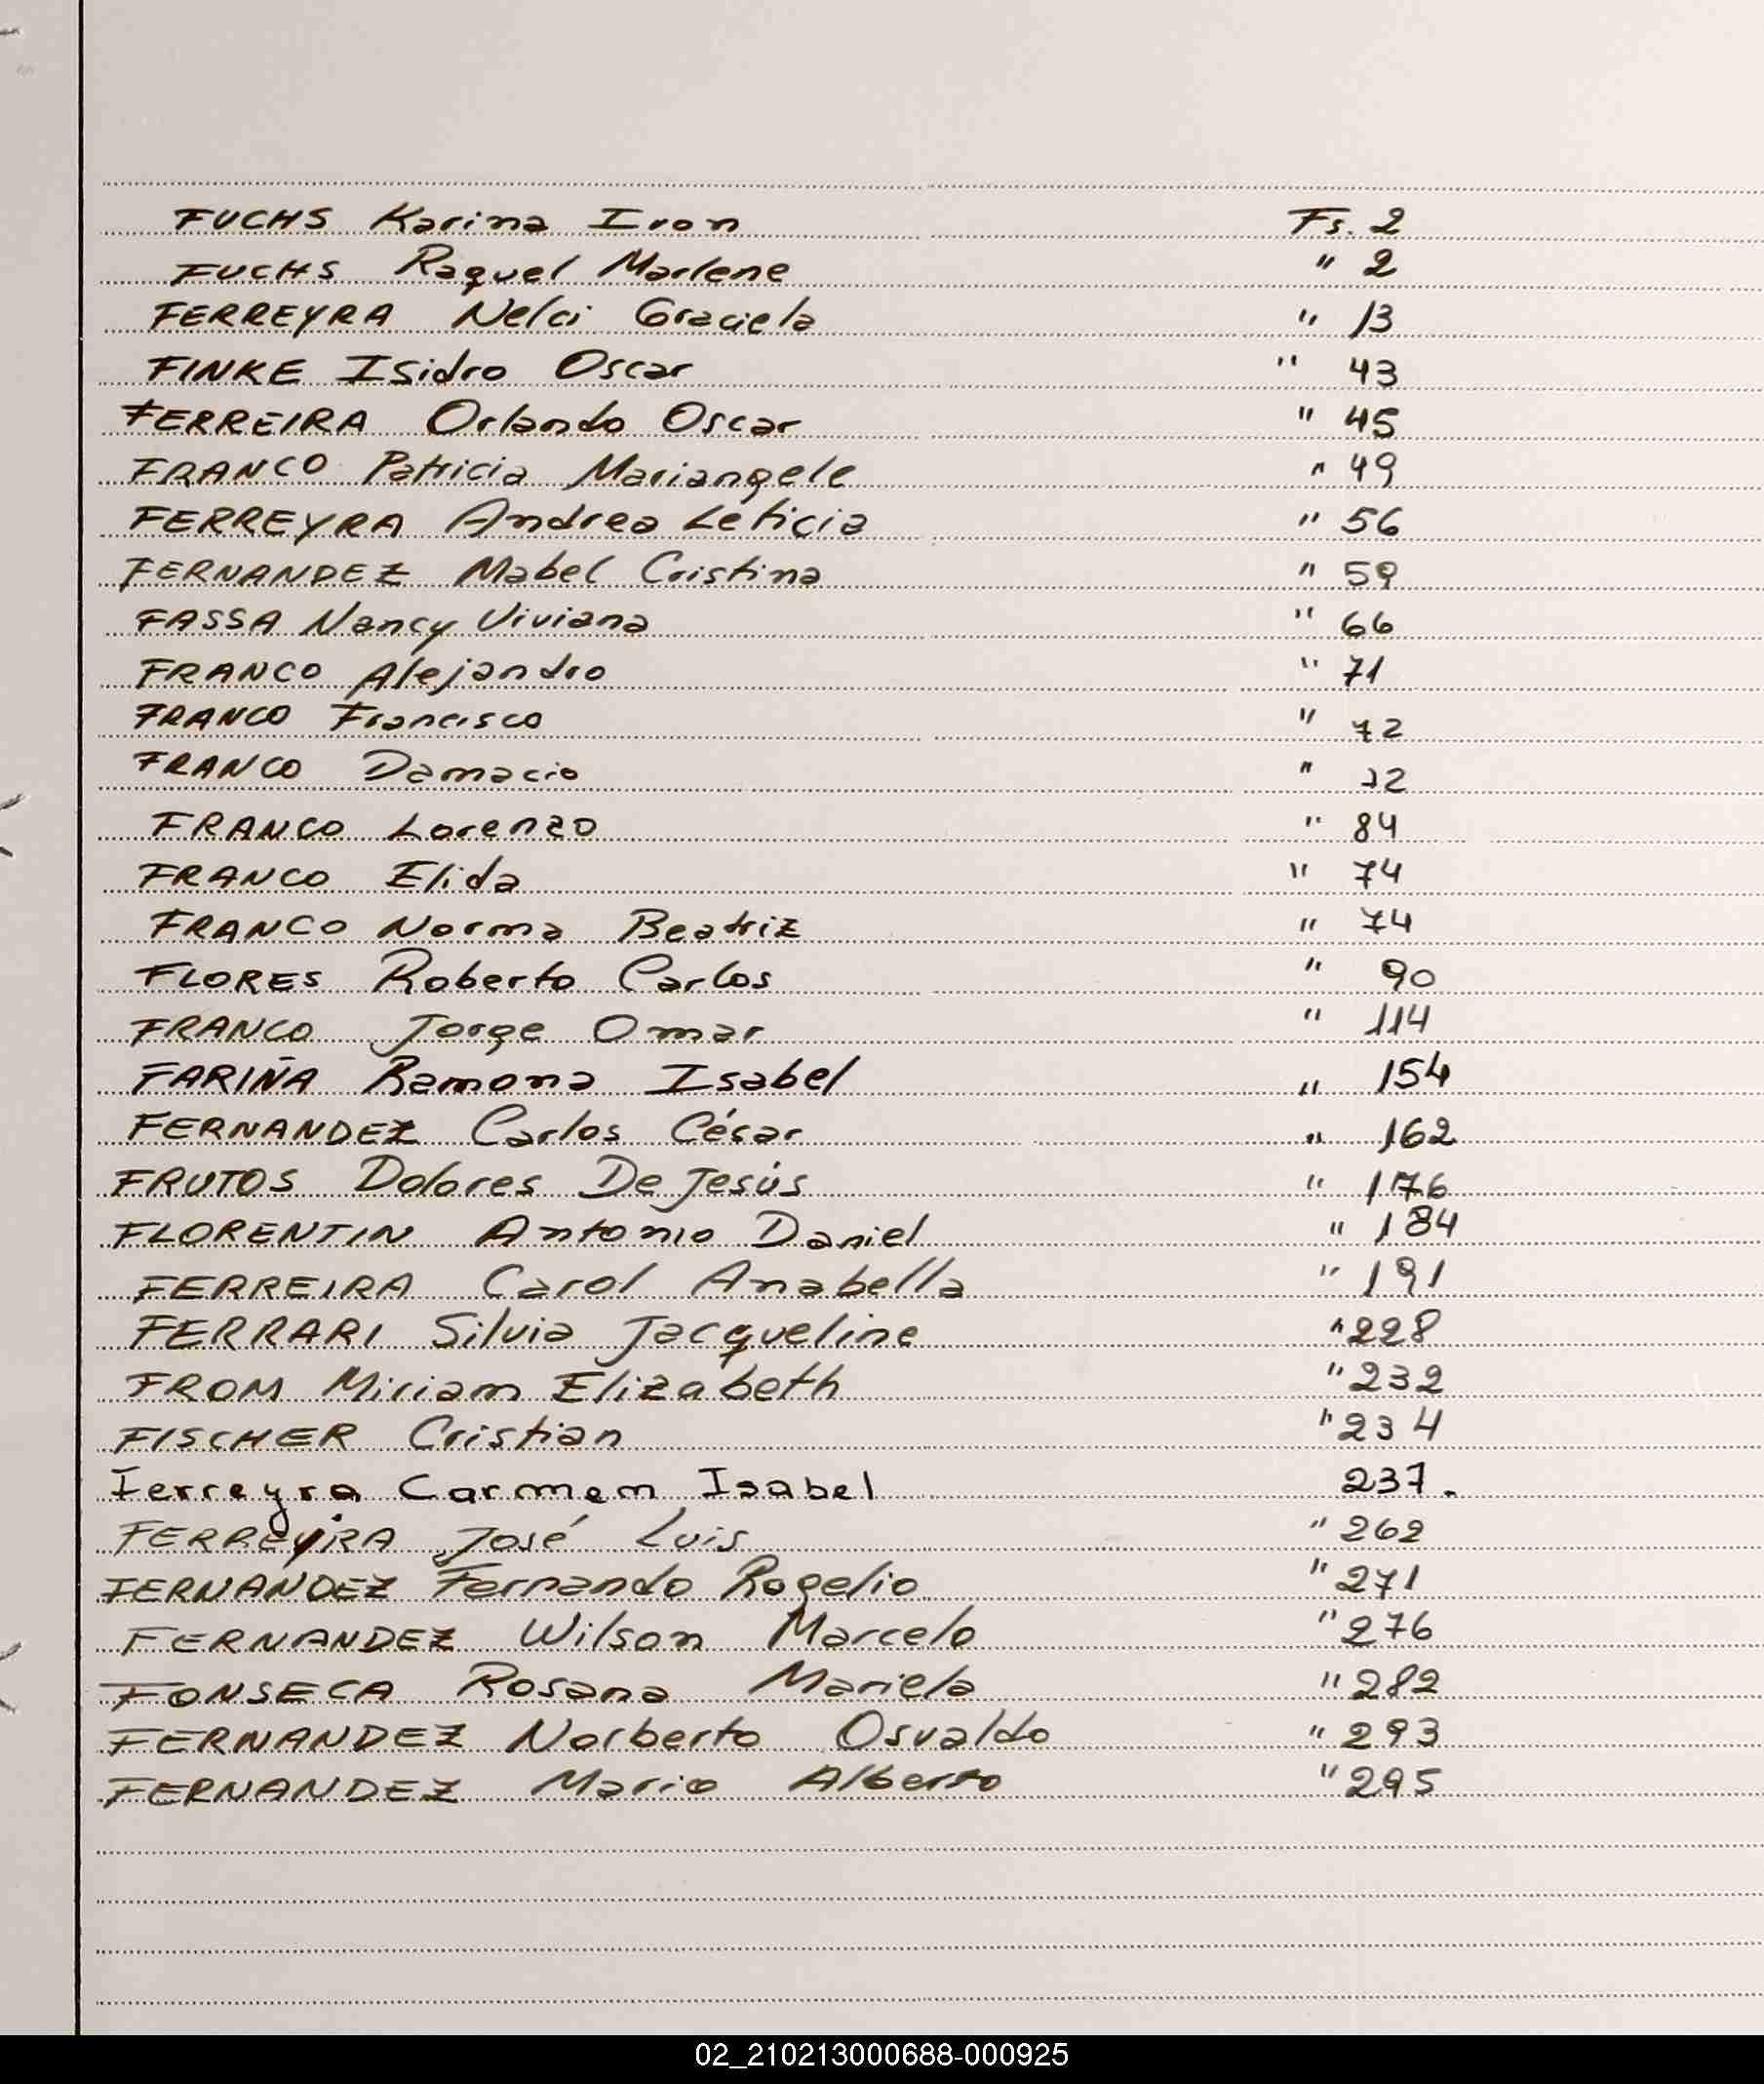 FUCHS Karina Ivon Fs. 2
FUCHS Raquel Marlene " 2
FERREYRA Nelci Graciela " 13
FINKE Isidro Oscar " 43
FERREIRA Orlando Oscar " 45
FRANCO Patricia Mariangele " 49
FERREYRA Andrea Leticia " 56
FERNANDEZ Mabel Cristina " 59
FASSA Nancy Viviana " 66
FRANCO Alejandro " 71
FRANCO Francisco " 72
FRANCO Damacio " 72
FRANCO Lorenzo " 84
FRANCO Elida " 74
FRANCO Norma Beatriz " 74
FLORES Roberto Carlos " 90
FRANCO Jorge Omar " 114
FARIÑA Ramona Isabel " 154
FERNANDEZ Carlos César " 162
FRUTOS Dolores De Jesús " 176
FLORENTIN Antonio Daniel " 184
FERREIRA Carol Anabella " 191
FERRARI Silvia Jacqueline " 228
FROM Miriam Elizabeth " 232
FISCHER Cristian " 234
Ferreyra Carmem Isabel 237.
FERREYRA José Luis " 262
FERNANDEZ Fernando Rogelio " 271
FERNANDEZ Wilson Marcelo " 276
FONSECA Rosana Mariela " 282
FERNANDEZ Norberto Osvaldo " 293
FERNANDEZ Mario Alberto " 295
02_210213000688-000925